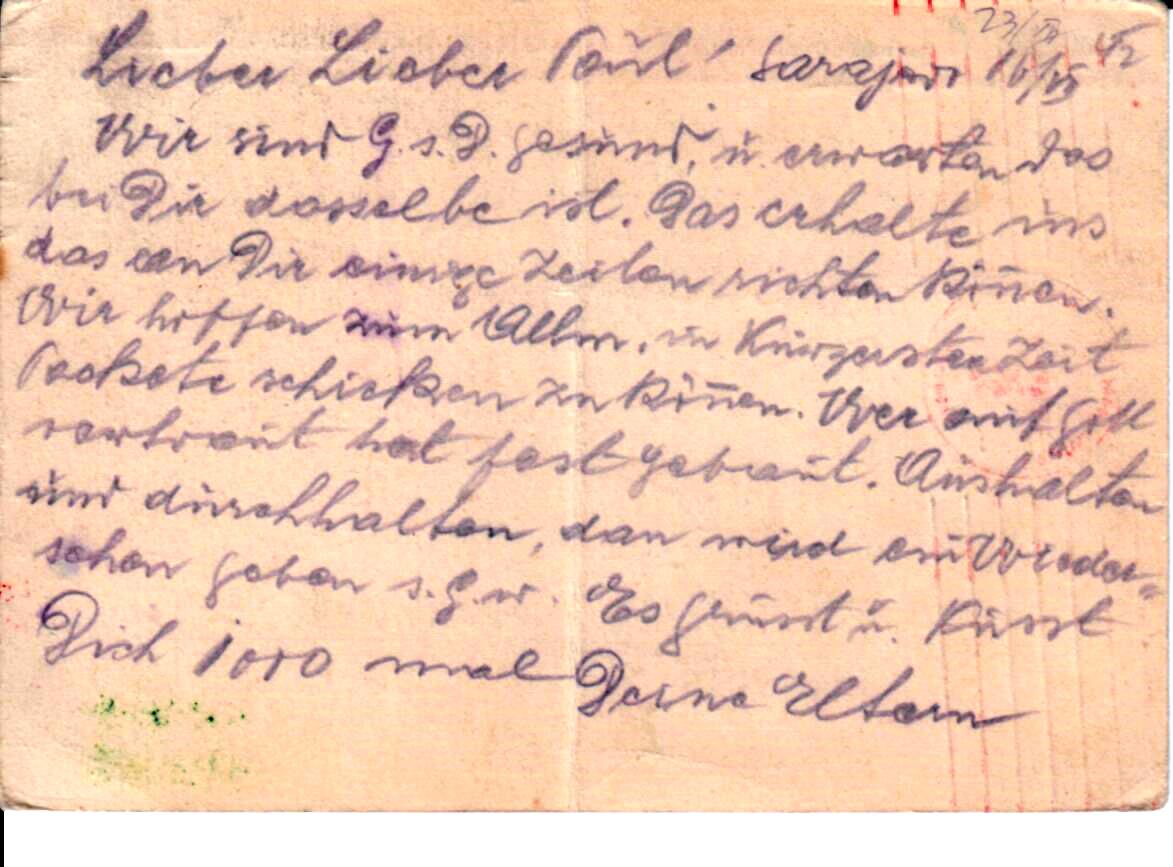 23/VI
Lieber Lieber Paul! Sarajevo 16/VI 42
Wir sind G.s.D. gesund, u. erwarten das
bei Dir dasselbe ist. Das erhalte uns
das an Dir einige Zeilen richten köñen.
Wir hoffen zum Allm. in Kürzerster Zeit
Packete schicken zu köñen. Wer auf Gott
vertraut hat fest gebaut. Aushalten
und durchhalten, dan wird ein Wieder=
sehen geben s.G.w. Es grüsst u. küsst
Dich 1000 mal Deine Eltern